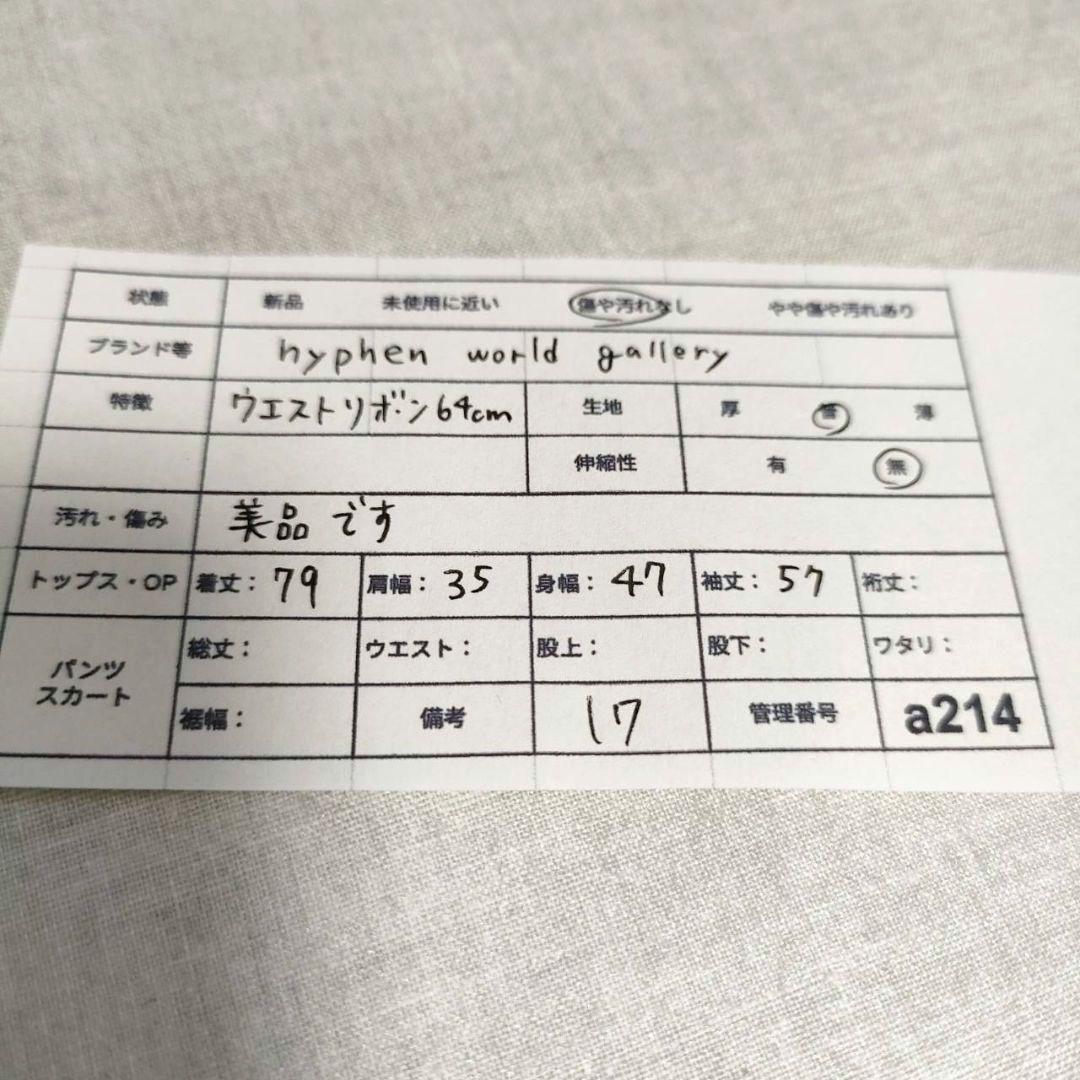 状態 新品 未使用に近い 傷や汚れなし やや傷や汚れあり
ブランド等 hyphen world gallery
特徴 ウエストリボン64cm 生地 厚 普 薄
伸縮性 有 無
汚れ・傷み 美品です
トップス・OP 着丈: 79 肩幅: 35 身幅: 47 袖丈: 57 裄丈:
パンツ スカート 総丈: ウエスト: 股上: 股下: ワタリ:
裾幅: 備考 17 管理番号 a214